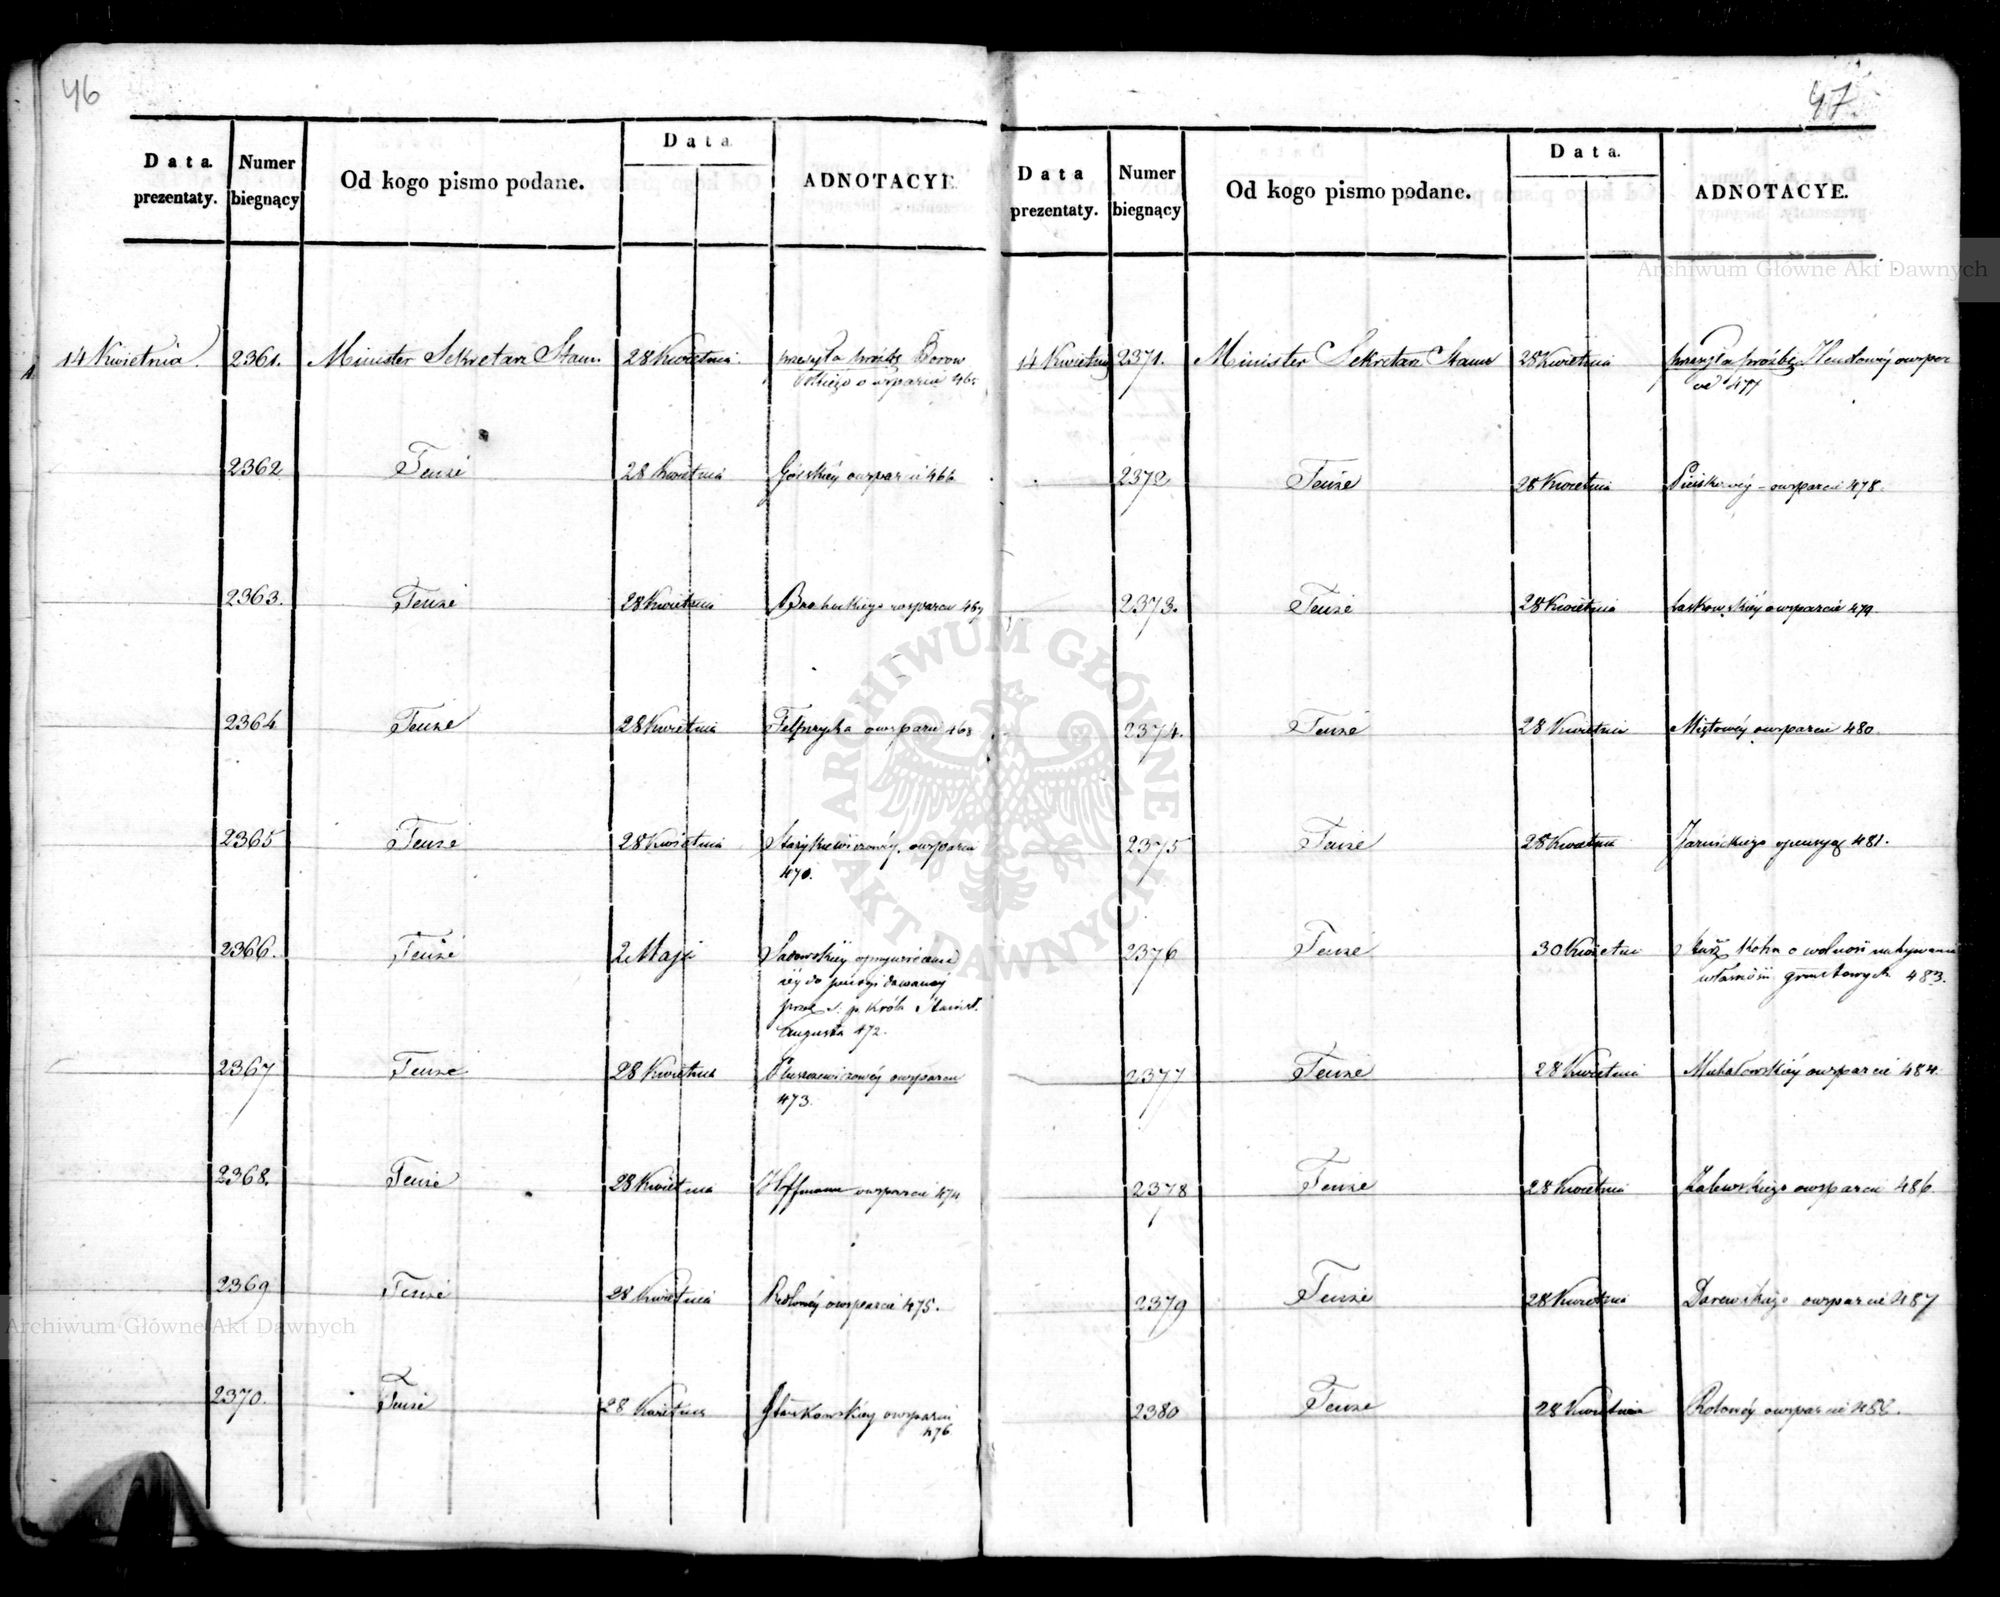 46
Data prezentaty.
Numer biegnący
Od kogo pismo podane.
Data
ADNOTACYE
14 Kwietnia 2361. Minister Sekretarz Stanu 28 Kwietnia przesyła prośbę Borow
skiego o wsparcie 465
2362 Tenże 28 Kwietnia Górskiéy o wsparcie 466
2363. Tenże 28 Kwietnia o wsparcie 467
2364 Tenże 28 Kwietnia o wsparcie 468
2365 Tenże 28 Kwietnia Starykiewiczowéy o wsparcie
470.
2366. Tenże 2 Maja Sadowskiéy o przywrócenie
iéy do pensyi dawanéy
przez ś. p. Króla Stanisł.
Augusta 472.
2367 Tenże 28 Kwietnia o wsparcie
473.
2368. Tenże 28 Kwietnia Hoffmann o wsparcie 474
2369 Tenże 28 Kwietnia o wsparcie 475.
2370. Tenże 28 Kwietnia o wsparcie
476
47
Data prezentaty.
Numer biegnący
Od kogo pismo podane.
Data.
ADNOTACYE.
14 Kwietnia 2371. Minister Sekretarz Stanu 28 Kwietnia przesyła prośbę o wspar
cie 477
2372 Tenże 28 Kwietnia o wsparcie 478.
2373. Tenże 28 Kwietnia Laskowskiéy o wsparcie 479.
2374. Tenże 28 Kwietnia Miętowéy o wsparcie 480.
2375 Tenże 28 Kwietnia o pensyą 481.
2376 Tenże 30 Kwietnia Kohn o wolność nabywania
własności gruntowych 483.
2377 Tenże 28 Kwietnia Michałowskiéy o wsparcie 484.
2378 Tenże 28 Kwietnia Zalewskiego o wsparcie 486.
2379 Tenże 28 Kwietnia Darewskiego o wsparcie 487
2380 Tenże 28 Kwietnia o wsparcie 488.
Archiwum Główne Akt Dawnych
ARCHIWUM GŁÓWNE AKT DAWNYCH
Archiwum Główne Akt Dawnych